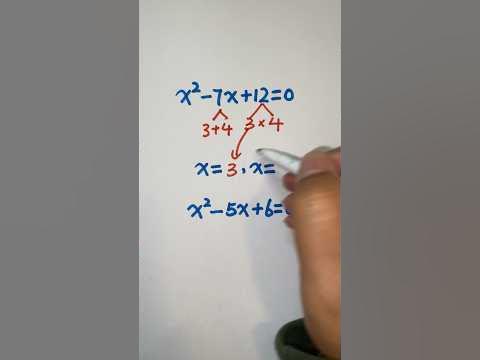 x²-7x+12=0
3+4 3×4
x=3, x=
x²-5x+6=